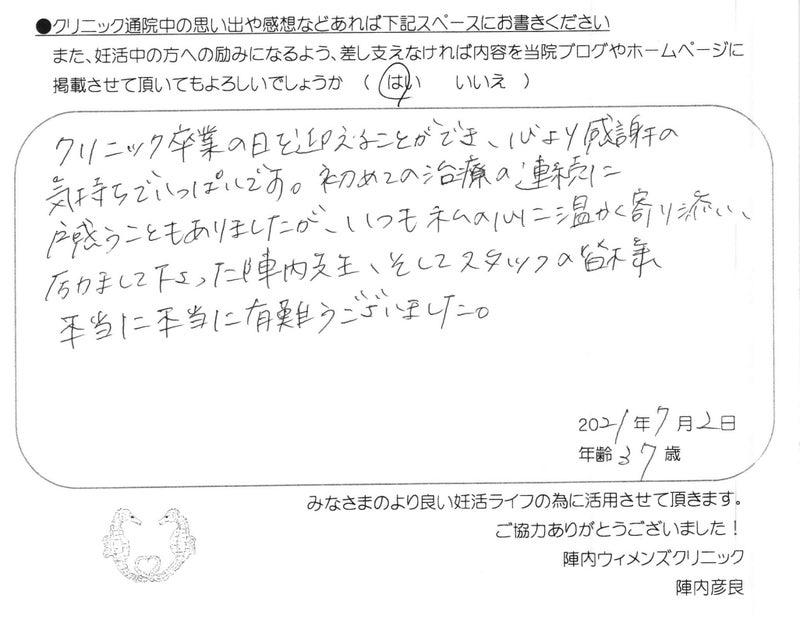 ●クリニック通院中の思い出や感想などあれば下記スペースにお書きください
また、妊活中の方への励みになるよう、差し支えなければ内容を当院ブログやホームページに
掲載させて頂いてもよろしいでしょうか （ はい いいえ ）
クリニック卒業の日を迎えることができ、心より感謝の
気持ちでいっぱいです。初めての治療の連続に
戸惑うこともありましたが、いつも私の心に温かく寄り添い、
励まして下さった陣内先生、そしてスタッフの皆様
本当に本当に有難うございました。
2021年7月2日
年齢37歳
みなさまのより良い妊活ライフの為に活用させて頂きます。
ご協力ありがとうございました！
陣内ウィメンズクリニック
陣内彦良